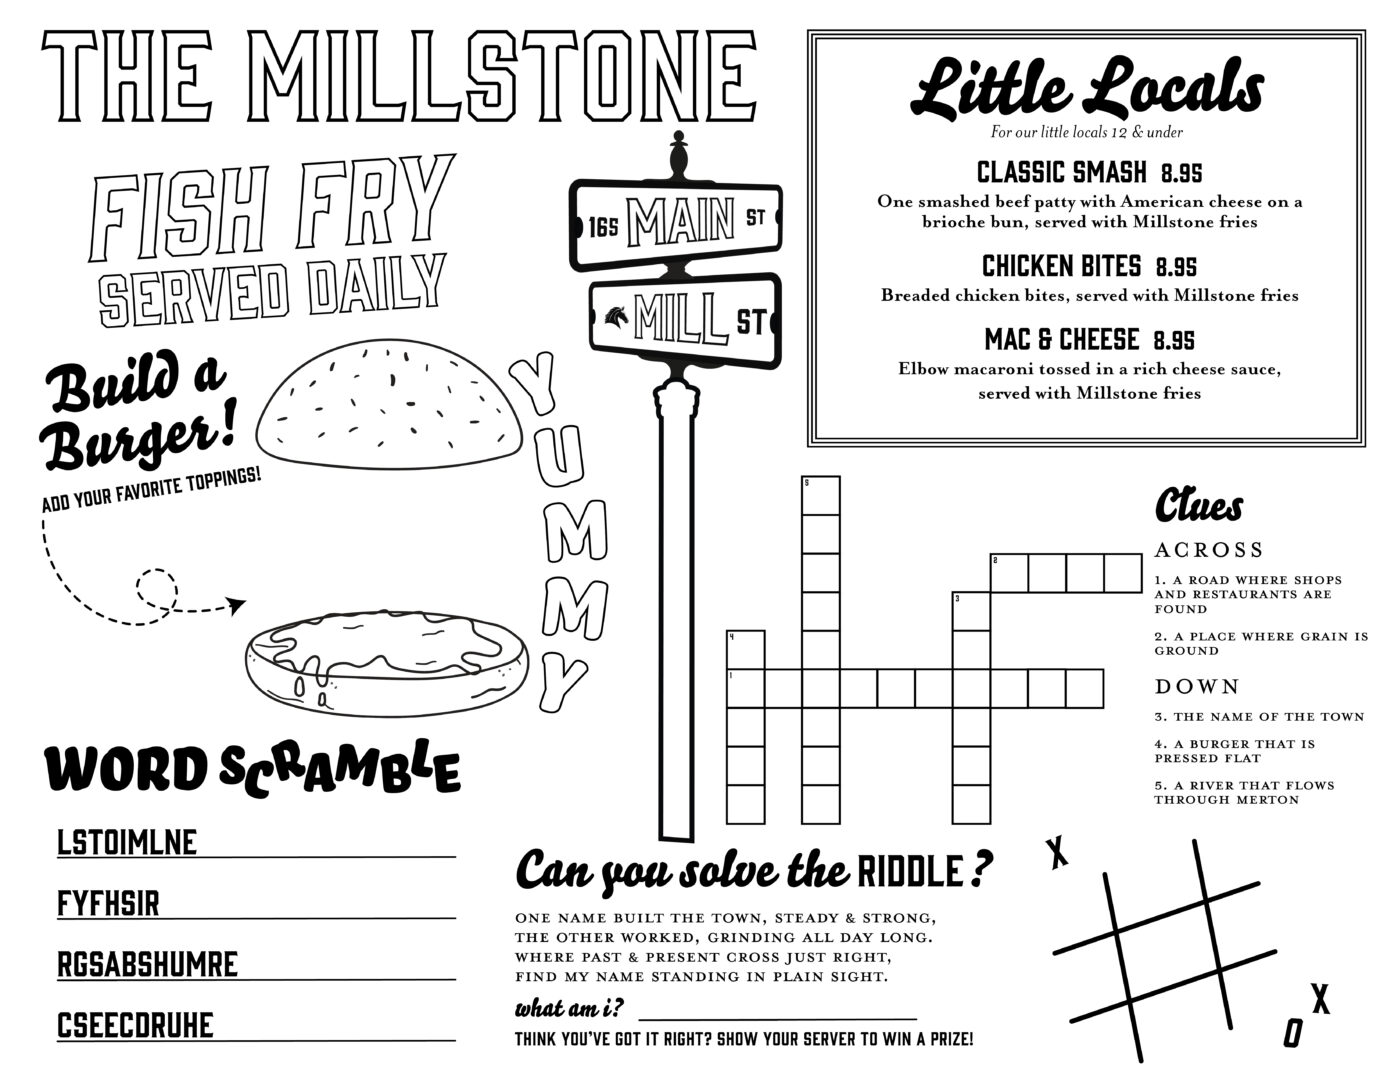 THE MILLSTONE
FISH FRY
SERVED DAILY
165 MAIN ST
MILL ST
Build a
Burger!
ADD YOUR FAVORITE TOPPINGS!
YUMMY
Little Locals
For our little locals 12 & under
CLASSIC SMASH 8.95
One smashed beef patty with American cheese on a
brioche bun, served with Millstone fries
CHICKEN BITES 8.95
Breaded chicken bites, served with Millstone fries
MAC & CHEESE 8.95
Elbow macaroni tossed in a rich cheese sauce,
served with Millstone fries
5
2
3
4
1
Clues
ACROSS
1. A ROAD WHERE SHOPS
AND RESTAURANTS ARE
FOUND
2. A PLACE WHERE GRAIN IS
GROUND
DOWN
3. THE NAME OF THE TOWN
4. A BURGER THAT IS
PRESSED FLAT
5. A RIVER THAT FLOWS
THROUGH MERTON
WORD SCRAMBLE
LSTOIMLNE
FYFHSIR
RGSABSHUMRE
CSEECDRUHE
Can you solve the RIDDLE?
ONE NAME BUILT THE TOWN, STEADY & STRONG,
THE OTHER WORKED, GRINDING ALL DAY LONG.
WHERE PAST & PRESENT CROSS JUST RIGHT,
FIND MY NAME STANDING IN PLAIN SIGHT.
what am i?
THINK YOU'VE GOT IT RIGHT? SHOW YOUR SERVER TO WIN A PRIZE!
X
X
O